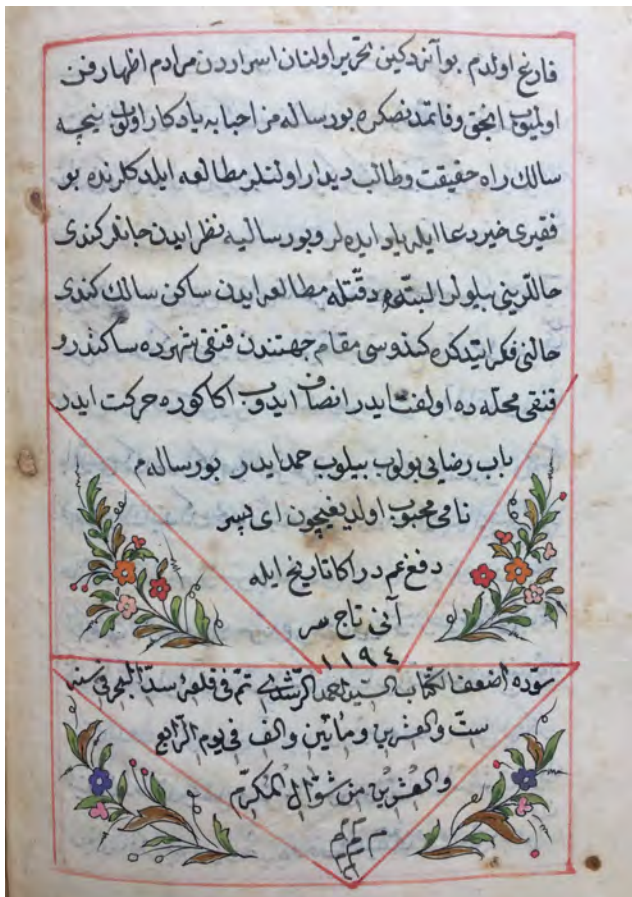 فارغ اولدم بو آنه دكین تحریر اولنان اسراردن مرادم اظهار فن
اولمیوب انجق وفاتمدنصكره بو رساله مز احبایه یادكار اولوب نیچه
سالك راه حقیقت وطالب دیدار اولنلر مطالعه ایلدكلرنده بو
فقیری خیر دعا ایله یاد ایده لر و بو رسالیه نظر ایدن جانلر كندی
حاللرینی بیلورلر البته دقتله مطالعه ایدن ساكن سالك كندی
حالنی فكر ایتدكده كندوسی مقام جهتندن قنقی شهرده ساكندر و
قنقی محله ده اولفت ایدر انصاف ایدوب اكا كوره حركت ایدر
باب رضایی بولوب بیلوب حمد ایدر بو رساله م
نامی محبوب اولدیغیچون ای پسر
دفع غم در اكا تاریخ ایله
آنی تاج سر
١١٩٤
سوده اضعف الكتاب السید احمد الرشدی تم فی قلعۀ سد البحر فی سنه
ست والعشرین ومأتین والف فی یوم الرابع
والعشرین من شوال المكرم
م م م